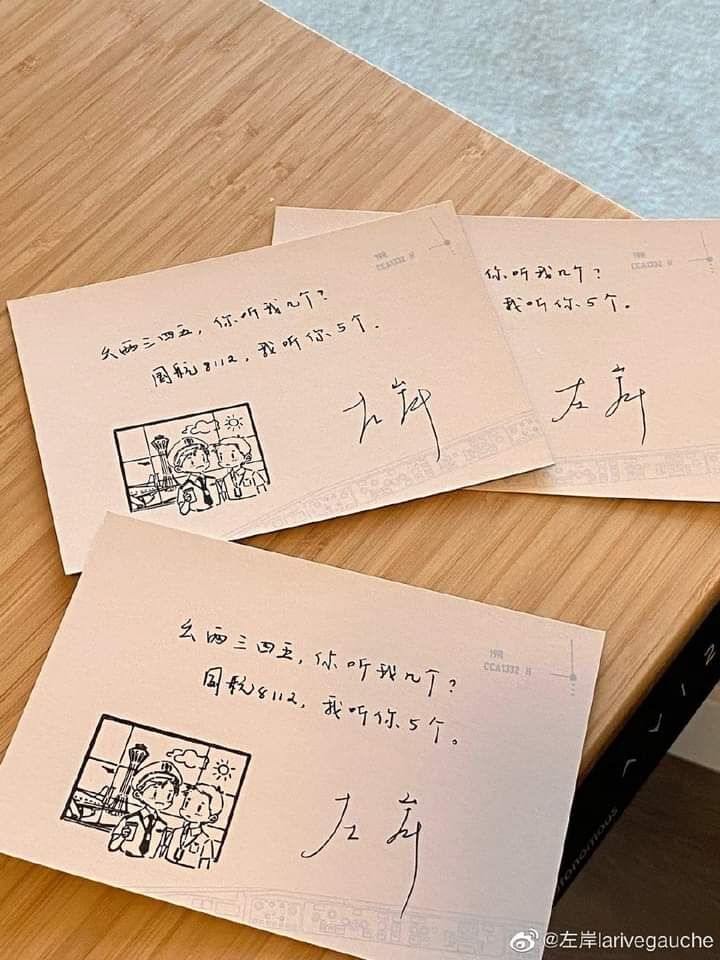 19R
CCA1332 H
幺两三四五，你听我几个？
国航8112，我听你5个.
左岸
19R
CCA1332 H
你听我几个？
我听你5个。
左岸
19R
CCA1332 H
幺两三四五，你听我几个？
国航8112，我听你5个。
左岸
1 2
tonomous
@左岸larivegauche